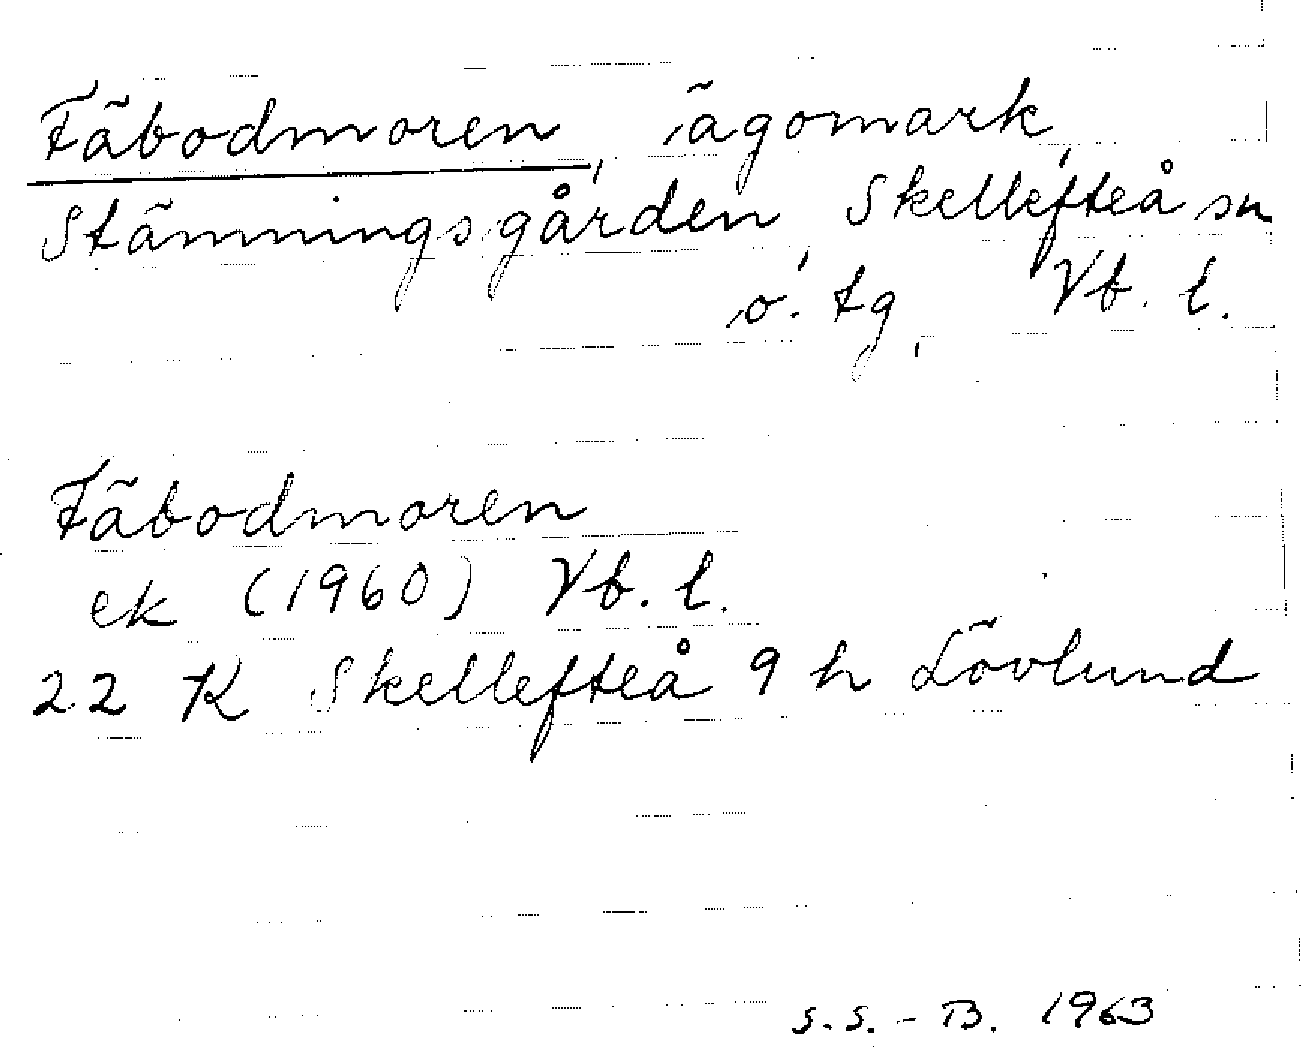 Fäbodmoren, ägomark,
Stämningsgården, Skellefteå sn
o. tg, Vb. l.
Fäbodmoren
ek (1960) Vb. l.
22 K Skellefteå 9 h Lövlund
S.S.-B. 1963